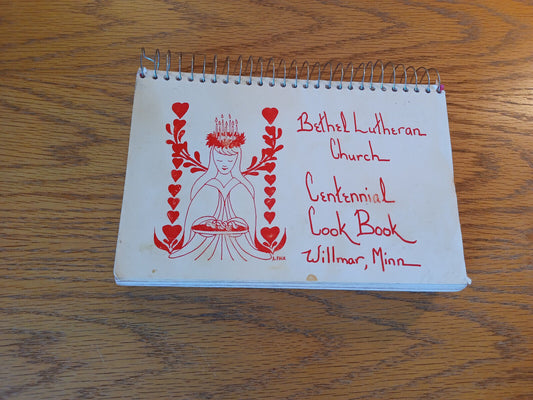 Bethel Lutheran
Church
Centennial
Cook Book
Willmar, Minn